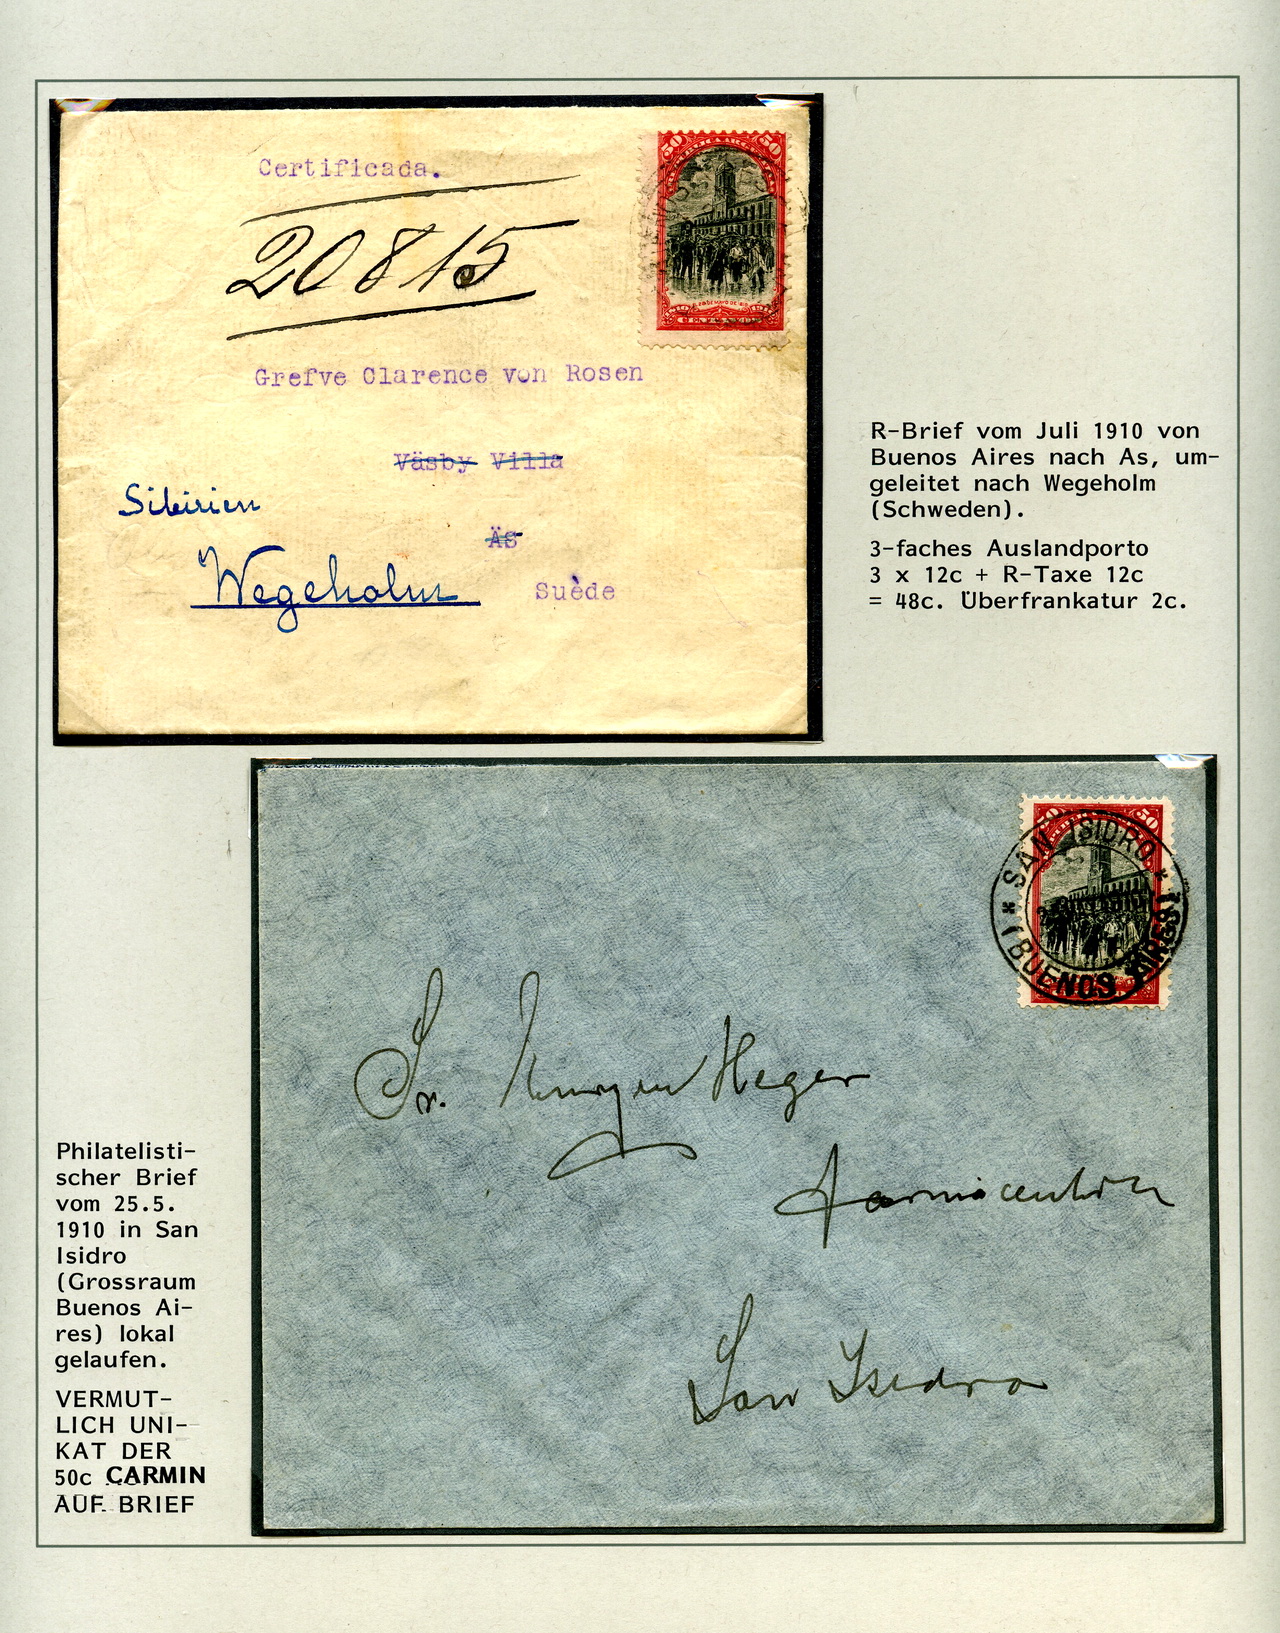 Certificada.
50 50
20815
Grefve Clarence von Rosen
Väsby Villa
Sibirien
Äs
Wegeholm Suède
R-Brief vom Juli 1910 von
Buenos Aires nach As, um-
geleitet nach Wegeholm
(Schweden).
3-faches Auslandporto
3 x 12c + R-Taxe 12c
= 48c. Überfrankatur 2c.
50 50
* SAN ISIDRO *
(BUENOS AIRES)
Sr. Heger
San Isidro
Philatelisti-
scher Brief
vom 25.5.
1910 in San
Isidro
(Grossraum
Buenos Ai-
res) lokal
gelaufen.
VERMUT-
LICH UNI-
KAT DER
50c CARMIN
AUF BRIEF